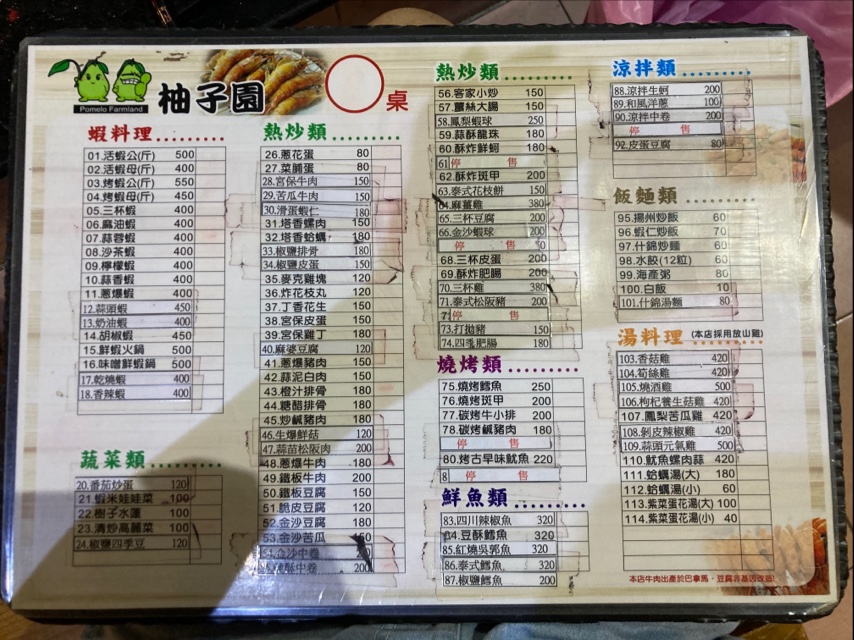 Pomelo Farmland
柚子園
桌
蝦料理
01.活蝦公(斤) 500
02.活蝦母(斤) 400
03.烤蝦公(斤) 550
04.烤蝦母(斤) 450
05.三杯蝦 400
06.麻油蝦 400
07.蒜蓉蝦 400
08.沙茶蝦 400
09.檸檬蝦 400
10.蒜香蝦 400
11.蔥爆蝦 400
12.蒜頭蝦 450
13.奶油蝦 400
14.胡椒蝦 450
15.鮮蝦火鍋 500
16.味噌鮮蝦鍋 500
17.乾燒蝦 400
18.香辣蝦 400
蔬菜類
20.番茄炒蛋 120
21.蝦米娃娃菜 100
22.樹子水蓮 100
23.清炒高麗菜 100
24.椒鹽四季豆 120
熱炒類
26.蔥花蛋 80
27.菜脯蛋 80
28.宮保牛肉 150
29.苦瓜牛肉 150
30.滑蛋蝦仁 180
31.塔香螺肉 150
32.塔香蛤蠣 180
33.椒鹽排骨 180
34.椒鹽皮蛋 150
35.麥克雞塊 120
36.炸花枝丸 150
37.丁香花生 150
38.宮保皮蛋 150
39.宮保雞丁 180
40.麻婆豆腐 120
41.蔥爆豬肉 150
42.蒜泥白肉 150
43.橙汁排骨 180
44.糖醋排骨 180
45.炒鹹豬肉 180
46.生爆鮮菇 120
47.蒜苗松阪肉 200
48.蔥爆牛肉 180
49.鐵板牛肉 200
50.鐵板豆腐 150
51.脆皮豆腐 120
52.金沙豆腐 180
53.金沙苦瓜 150
金沙中卷 200
中卷 200
熱炒類
56.客家小炒 150
57.薑絲大腸 150
58.鳳梨蝦球 250
59.蒜酥龍珠 180
60.酥炸鮮蚵 180
61 停 售
62.酥炸斑甲 200
63.泰式花枝餅 150
64.麻薑雞 380
65.三杯豆腐 200
66.金沙蝦球 200
停 售 0
68.三杯皮蛋 200
69.酥炸肥腸 200
70.三杯雞 380
71.泰式松阪豬 200
7 停 售
73.打拋豬 150
74.四季肥腸 180
燒烤類
75.燒烤鱈魚 250
76.燒烤斑甲 200
77.碳烤牛小排 200
78.碳烤鹹豬肉 180
停 售
80.烤古早味魷魚 220
8 停 售
鮮魚類
83.四川辣椒魚 320
84.豆酥鱈魚 320
85.紅燒吳郭魚 320
86.泰式鱈魚 320
87.椒鹽鱈魚 200
涼拌類
88.涼拌生蚵 200
89.和風洋蔥 100
90.涼拌中卷 200
停 售
92.皮蛋豆腐 80
飯麵類
95.揚州炒飯 60
96.蝦仁炒飯 70
97.什錦炒麵 60
98.水餃(12粒) 60
99.海產粥 80
100.白飯 10
101.什錦湯麵 80
湯料理 (本店採用放山雞)
103.香菇雞 420
104.筍絲雞 420
105.燒酒雞 500
106.枸杞養生菇雞 420
107.鳳梨苦瓜雞 420
108.剝皮辣椒雞 420
109.蒜頭元氣雞 500
110.魷魚螺肉蒜 420
111.蛤蠣湯(大) 180
112.蛤蠣湯(小) 60
113.紫菜蛋花湯(大) 100
114.紫菜蛋花湯(小) 40
本店牛肉出產於巴拿馬，豆腐非基因改造!